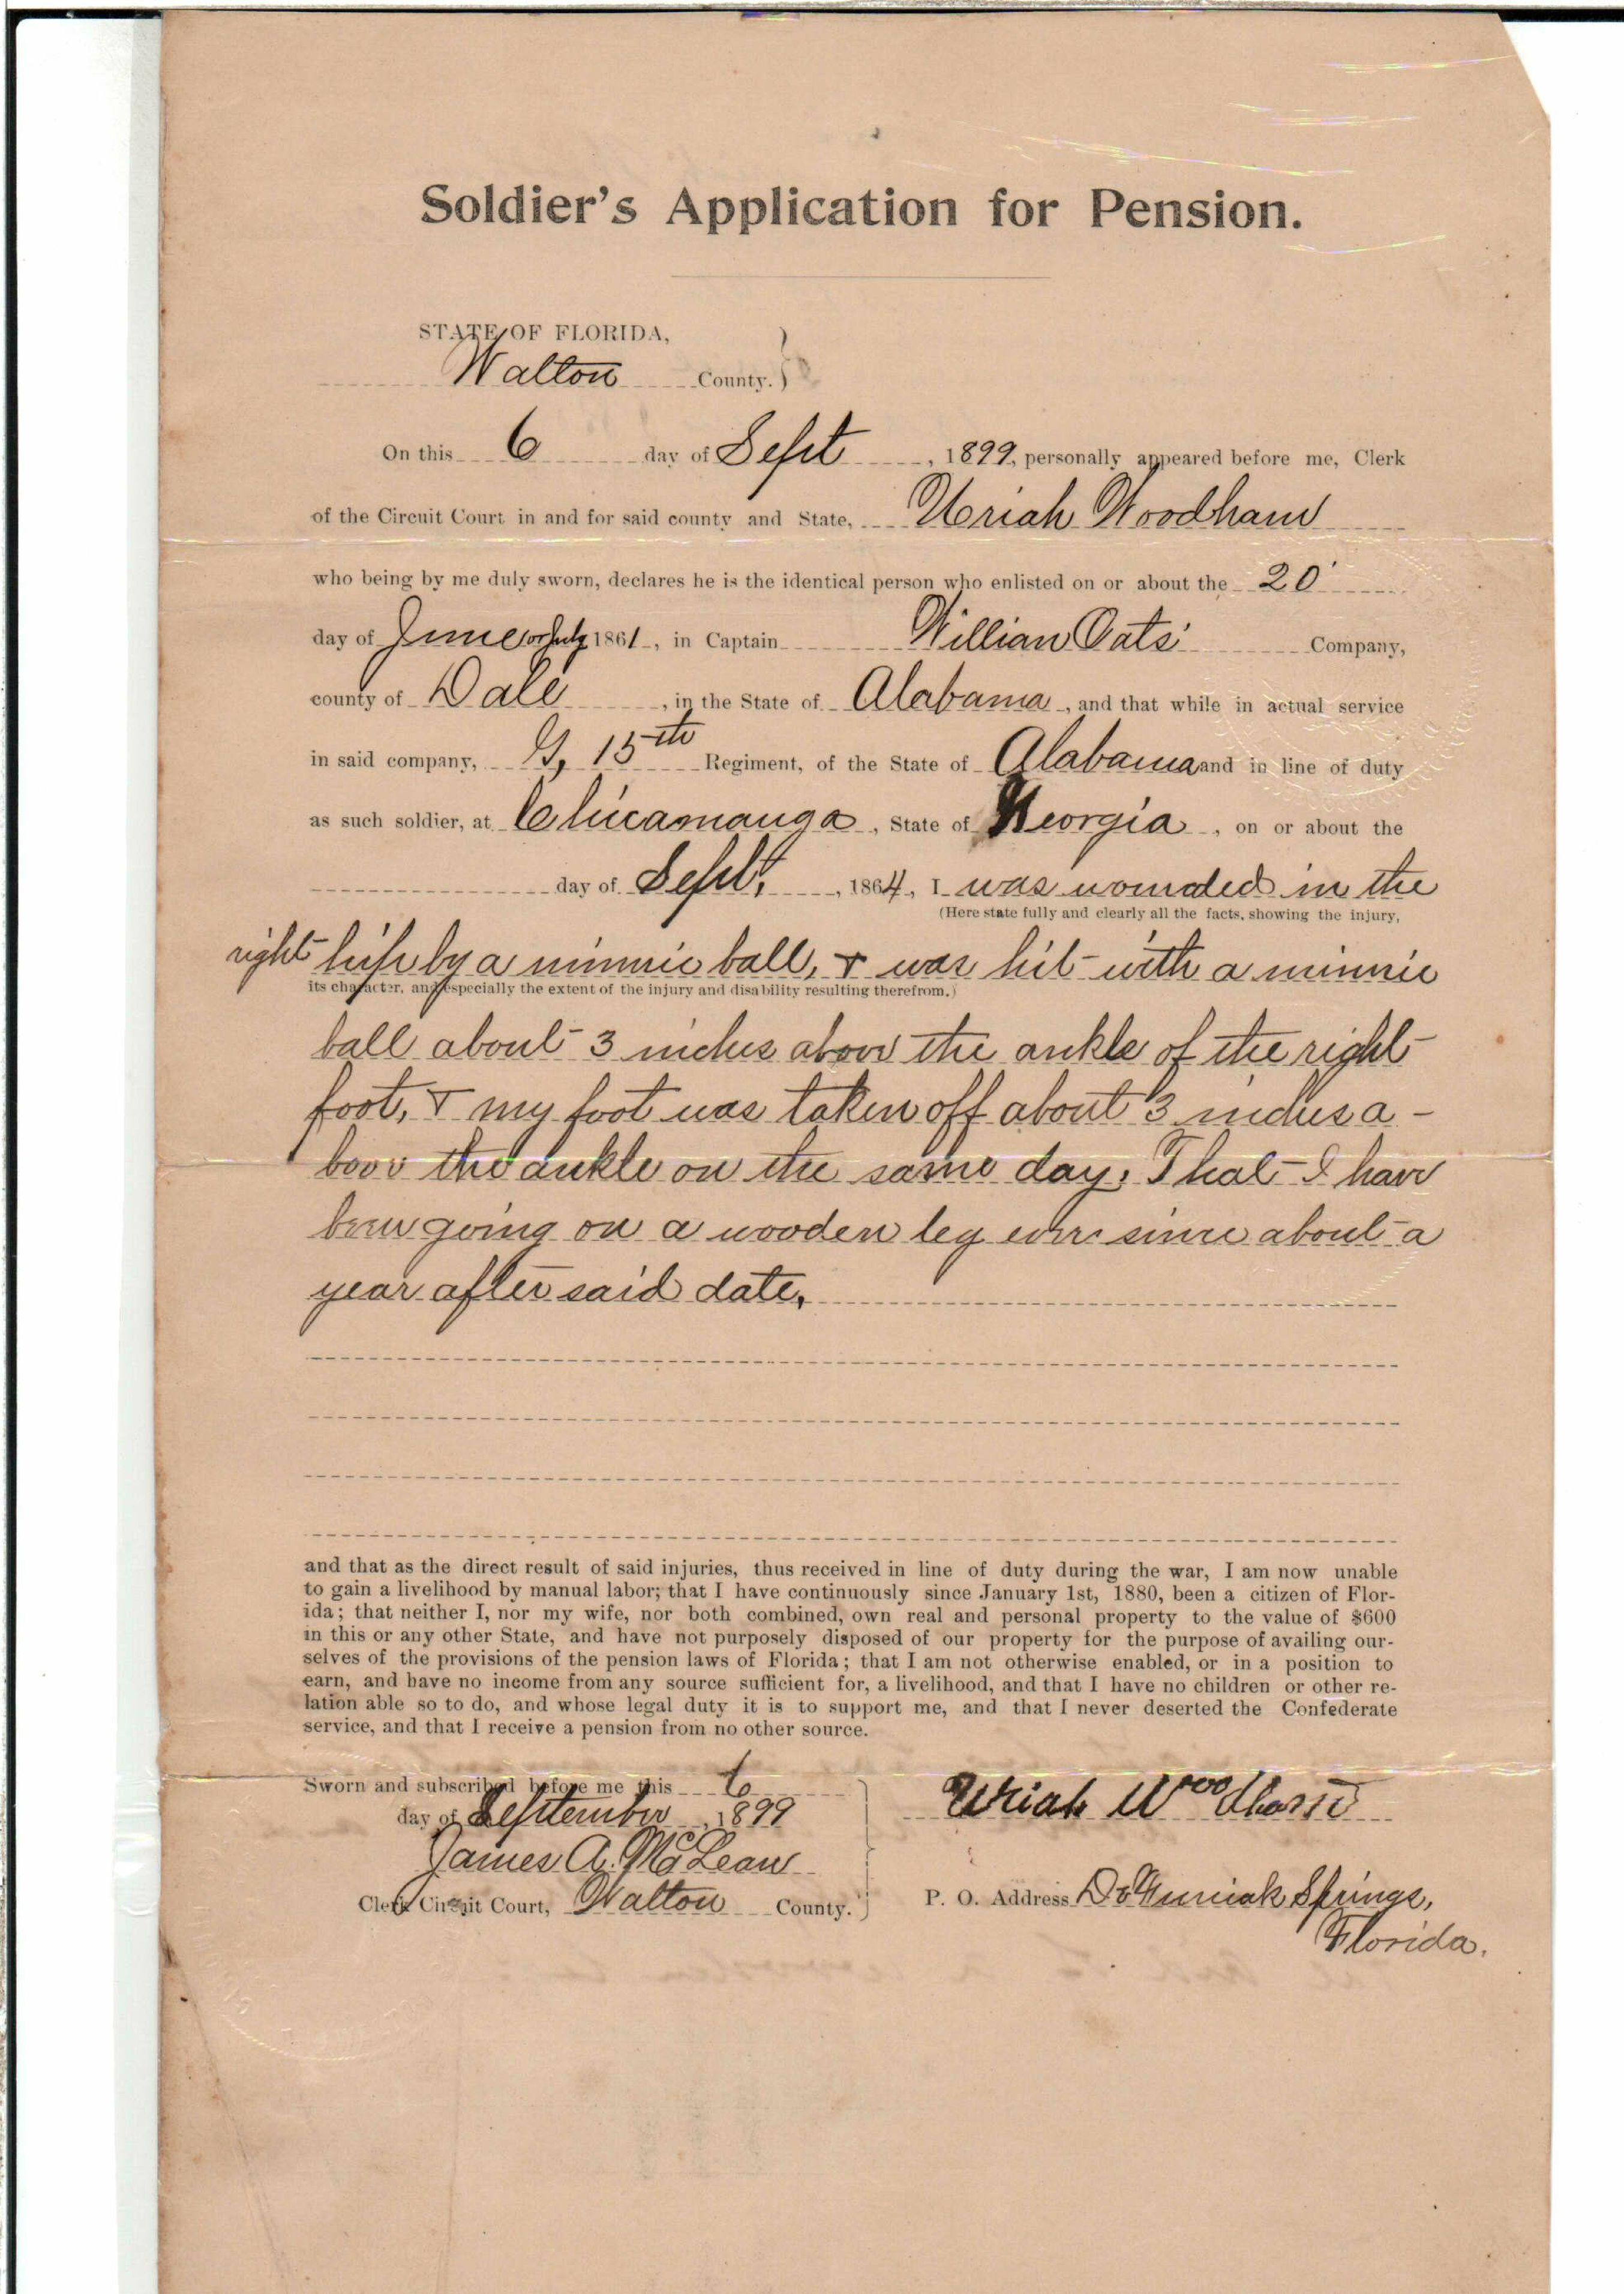 Soldier's Application for Pension.
STATE OF FLORIDA,
Walton County. }
On this 6 day of Sept, 1899, personally appeared before me, Clerk
of the Circuit Court in and for said county and State, Uriah Woodham
who being by me duly sworn, declares he is the identical person who enlisted on or about the 20
day of June or July 1861, in Captain Willian Oats' Company,
county of Dale, in the State of Alabama, and that while in actual service
in said company, G, 15th Regiment, of the State of Alabama and in line of duty
as such soldier, at Chicamauga, State of Georgia, on or about the
day of Sept., 1864, I was wounded in the
(Here state fully and clearly all the facts, showing the injury,
right hip by a minnie ball, & was hit with a minnie
its character, and especially the extent of the injury and disability resulting therefrom.)
ball about 3 inches above the ankle of the right
foot, & my foot was taken off about 3 inches a-
bove the ankle on the same day. That I have
been going on a wooden leg ever since about a
year after said date.
and that as the direct result of said injuries, thus received in line of duty during the war, I am now unable
to gain a livelihood by manual labor; that I have continuously since January 1st, 1880, been a citizen of Flor-
ida; that neither I, nor my wife, nor both combined, own real and personal property to the value of $600
in this or any other State, and have not purposely disposed of our property for the purpose of availing our-
selves of the provisions of the pension laws of Florida; that I am not otherwise enabled, or in a position to
earn, and have no income from any source sufficient for, a livelihood, and that I have no children or other re-
lation able so to do, and whose legal duty it is to support me, and that I never deserted the Confederate
service, and that I receive a pension from no other source.
Sworn and subscribed before me this 6
day of September, 1899
James A. McLean
Clerk Circuit Court, Walton County. }
Uriah Woodham
P. O. Address DeFuniak Springs,
Florida.